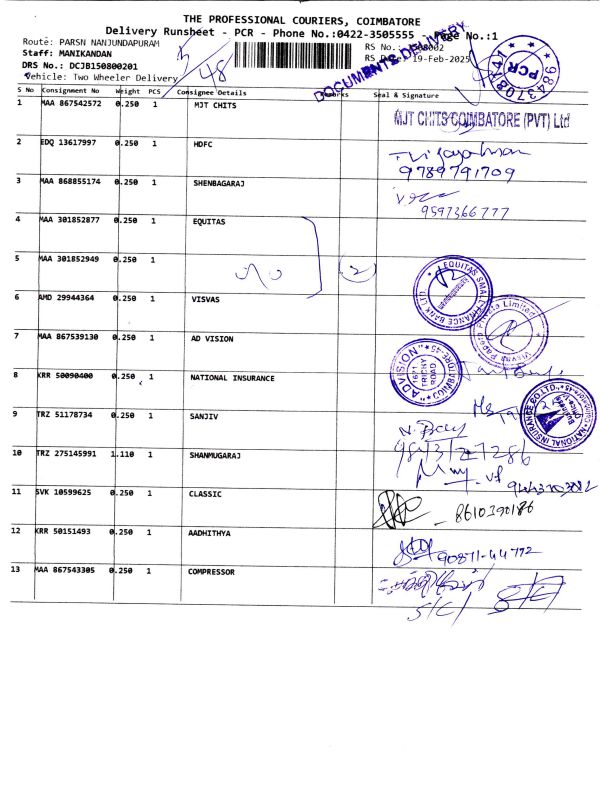 THE PROFESSIONAL COURIERS, COIMBATORE
Delivery Runsheet - PCR - Phone No.:0422-3505555 - Page No.:1
Route: PARSN NANJUNDAPURAM
Staff: MANIKANDAN
DRS No.: DCJB150800201
Vehicle: Two Wheeler Delivery
5/48
DOCUMENTS DELIVERY
RS Date: 19-Feb-2025
PCR
S No Consignment No Weight PCS Consignee Details Remarks Seal & Signature
1 MAA 867542572 0.250 1 MJT CHITS
MJT CHITS COIMBATORE (PVT) Ltd
2 EDQ 13617997 0.250 1 HDFC
9789791709
3 MAA 868855174 0.250 1 SHENBAGARAJ
9597366777
4 MAA 301852877 0.250 1 EQUITAS
5 MAA 301852949 0.250 1
(2)
EQUITAS SMALL FINANCE BANK LTD
6 AMD 29944364 0.250 1 VISVAS
Visvas Papers Private Limited
7 MAA 867539130 0.250 1 AD VISION
"AD VISION" COIMBATORE-45
1671 TRICHY ROAD
8 KRR 50090400 0.250 1 NATIONAL INSURANCE
NATIONAL INSURANCE CO.LTD.,
9 TRZ 51178734 0.250 1 SANJIV
10 TRZ 275145991 1.110 1 SHANMUGARAJ
11 SVK 10599625 0.250 1 CLASSIC
8610390186
12 KRR 50151493 0.250 1 AADHITHYA
90871-44772
13 MAA 867543305 0.250 1 COMPRESSOR